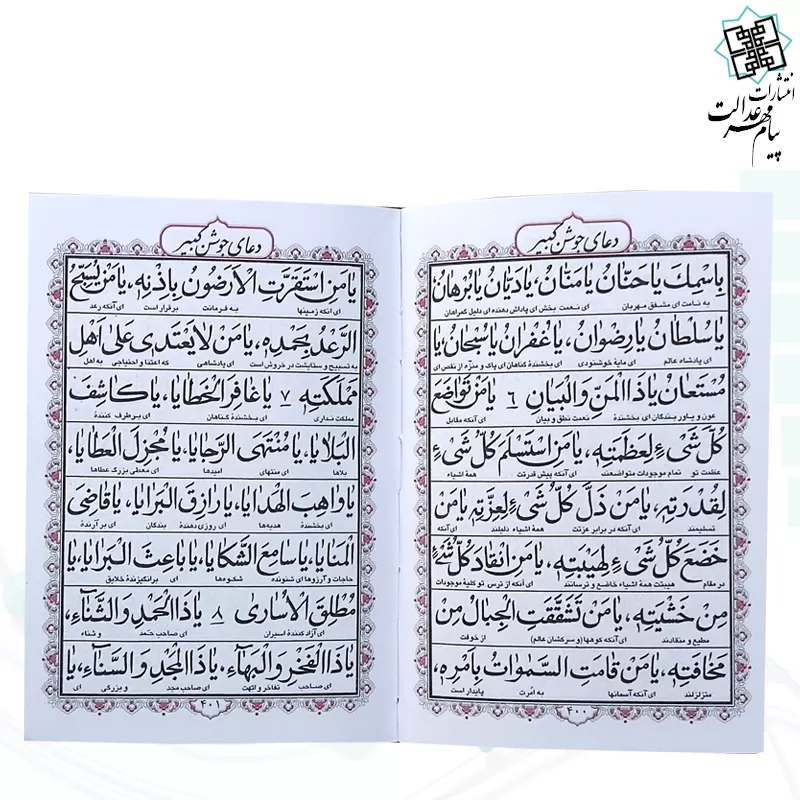 انتشارات
پیام مهر عدالت
دعای جوشن کبیر
بِاسْمِكَ یا حَنّانُ یا مَنّانُ، یا دَیّانُ یا بُرْهانُ
به نامت ای مشفق مهربان ای نعمت بخش ای پاداش دهنده ای دلیل گمراهان
یا سُلْطانُ یا رِضْوانُ، یا غُفْرانُ یا سُبْحانُ یا
ای پادشاه عالم ای مایهٔ خوشنودی ای بخشندهٔ گناهان ای پاک و منزّه از نقص ای
مُسْتَعانُ یا ذَا الْمَنِّ وَ الْبَیانِ ۶ یا مَنْ تَواضَعَ
عون و یاور بندگان ای بخشندهٔ نعمت نطق و بیان ای آنکه مقابل
كُلُّ شَیْ‏ءٍ لِعَظَمَتِهِ، یا مَنِ اسْتَسْلَمَ كُلُّ شَیْ‏ءٍ
عظمت تو تمام موجودات متواضعند ای آنکه پیش قدرتت همهٔ اشیاء
لِقُدْرَتِهِ، یا مَنْ ذَلَّ كُلُّ شَیْ‏ءٍ لِعِزَّتِهِ یا مَنْ
تسلیمند ای آنکه در برابر عزتت همهٔ اشیاء ذلیلند ای آنکه
خَضَعَ كُلُّ شَیْ‏ءٍ لِهَیْبَتِهِ، یا مَنِ انْقادَ كُلُّ شَیْ‏ءٍ
در مقام هیبتت همهٔ اشیاء خاضع و ترسانند ای آنکه از ترس تو کلیهٔ موجودات
مِنْ خَشْیَتِهِ، یا مَنْ تَشَقَّقَتِ الْجِبالُ مِنْ
مطیع و منقادند ای آنکه کوهها (و سرکشان عالم) از خوفت
مَخافَتِهِ، یا مَنْ قامَتِ السَّمٰواتُ بِاَمْرِهِ،
متزلزلند ای آنکه آسمانها به امرت پایدار است
۴۰۰
دعای جوشن کبیر
یا مَنِ اسْتَقَرَّتِ الْاَرَضُونَ بِاِذْنِهِ، یا مَنْ یُسَبِّحُ
ای آنکه زمینها به فرمانت برقرار است ای آنکه رعد
الرَّعْدُ بِحَمْدِهِ، یا مَنْ لا یَعْتَدی عَلىٰ اَهْلِ
به تسبیح و ستایشت در خروش است ای پادشاهی که اعتنا و احتیاجی به اهل
مَمْلَكَتِهِ ۷ یا غافِرَ الْخَطایا، یا كاشِفَ
مملکت نداری ای بخشندهٔ گناهان ای برطرف کنندهٔ
الْبَلایا، یا مُنْتَهَى الرَّجایا، یا مُجْزِلَ الْعَطایا،
بلاها ای منتهای امیدها ای معطی بزرگ عطاها
یا واهِبَ الْهَدایا، یا رازِقَ الْبَرایا، یا قاضِیَ
ای بخشندهٔ هدیه‌ها ای روزی دهندهٔ بندگان ای برآرندهٔ
الْمَنایا، یا سامِعَ الشَّكایا، یا باعِثَ الْبَرایا، یا
حاجات و آرزوها ای شنوندهٔ شکوه‌ها ای برانگیزندهٔ خلایق ای
مُطْلِقَ الْاُسارىٰ ۸ یا ذَا الْحَمْدِ وَ الثَّناءِ،
ای آزاد کنندهٔ اسیران ای صاحب حمد و ثناء
یا ذَا الْفَخْرِ وَ الْبَهاءِ، یا ذَا الْمَجْدِ وَ السَّناءِ، یا
ای صاحب تفاخر و ابهّت ای صاحب مجد و بزرگی ای
۴۰۱